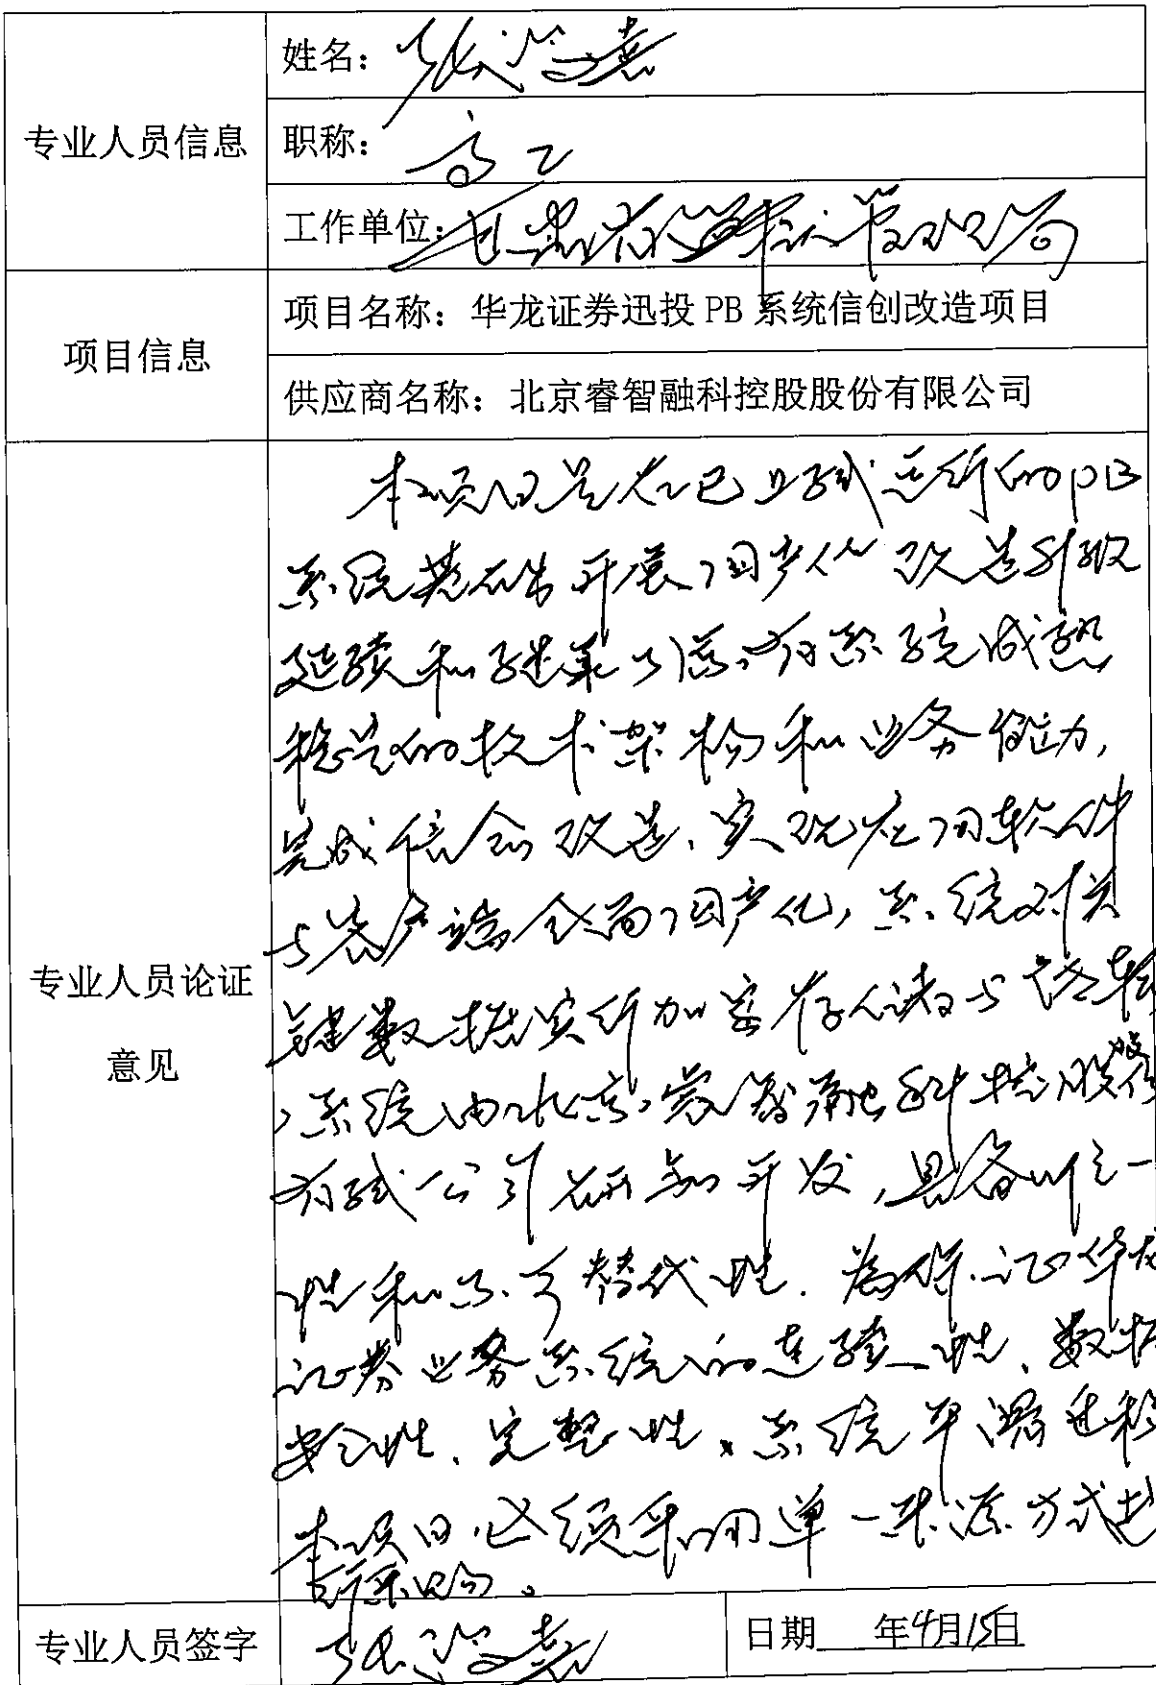 专业人员信息
姓名：张
职称：高工
工作单位：甘肃省管理局
项目信息
项目名称：华龙证券迅投 PB 系统信创改造项目
供应商名称：北京睿智融科控股股份有限公司
专业人员论证
意见
本项目是在已上线运行的PB
系统基础开展国产化改造升级
延续和继承了原有系统成熟
稳定的技术架构和业务能力,
完成信创改造、实现应用软件
与客户端全面国产化, 系统对关
键数据实行加密存储与传输
,系统由北京睿智融科控股股份
有限公司研制开发, 具备唯一
性和不可替代性. 为保证华龙
证券业务系统的连续性、数据
安全性、完整性、系统平滑迁移
本项目必须采用单一来源方式进
行采购。
专业人员签字
张
日期 年4月15日